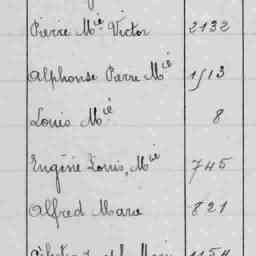 Pierre Mie Victor 2132
Alphonse Pierre Mie 1513
Louis Mie 8
Eugène Louis, Mie 745
Alfred Marie 821
1154